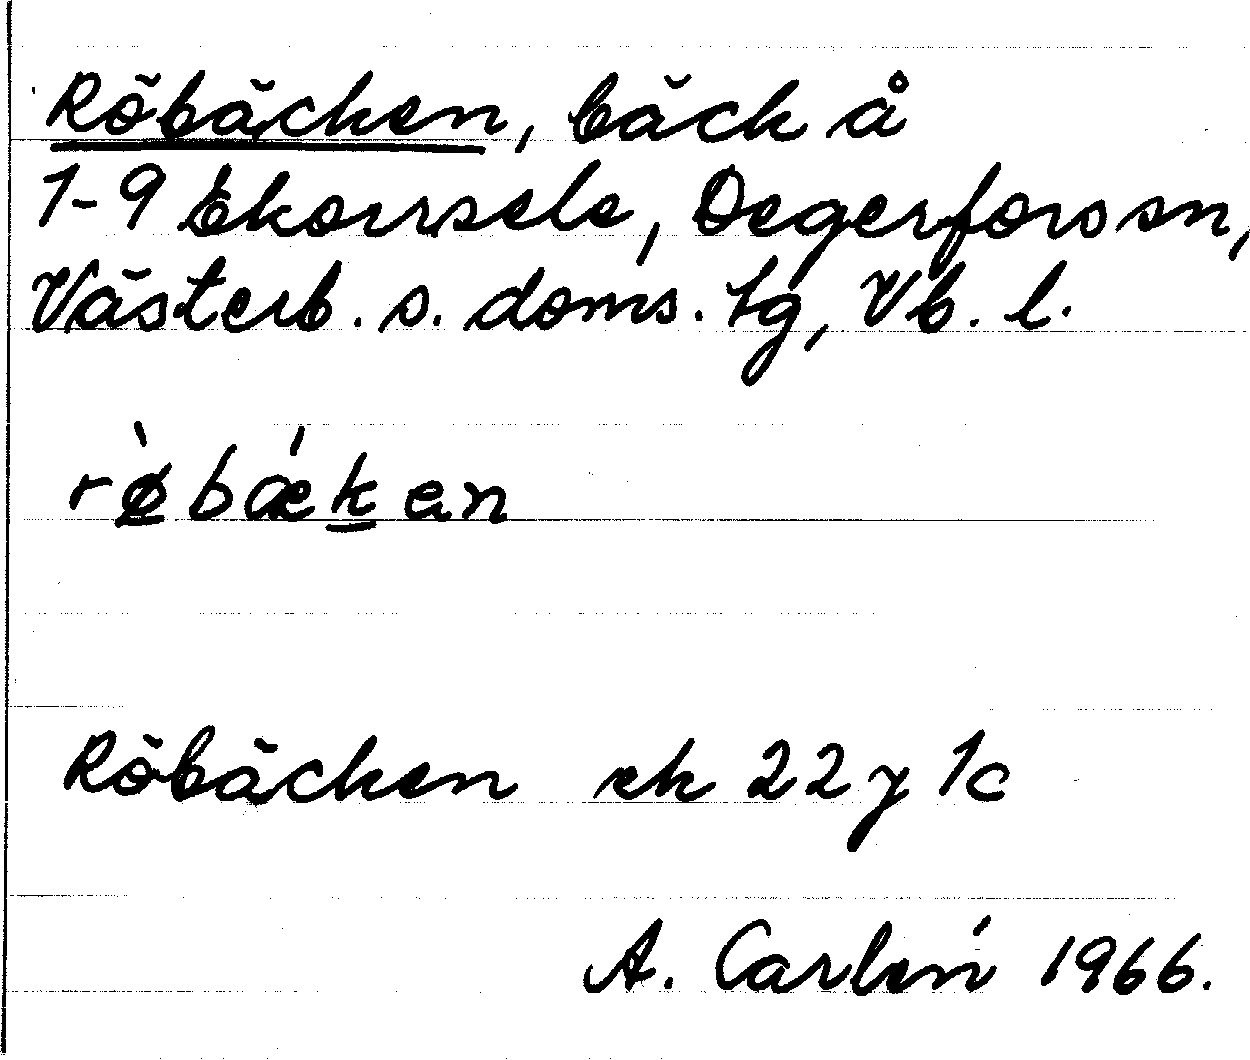 Röbäcken, bäck å
1-9 Ekorrsele, Degerfors sn,
Västerb. s. doms. tg, Vb. l.
rø̀bǽken
Röbäcken rk 22 y 1c
A. Carlén 1966.